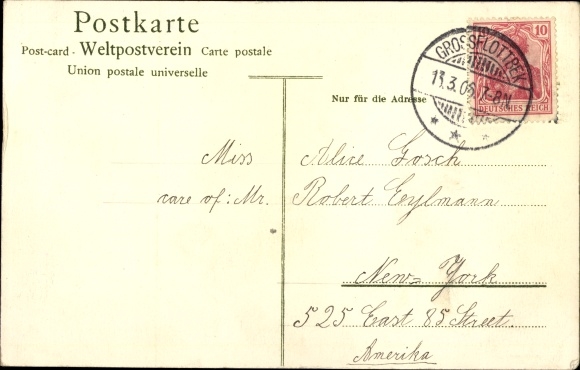 Postkarte
Post-card - Weltpostverein Carte postale
Union postale universelle
Nur für die Adresse
GROSSFLOTTBEK
13.3.06. 7-8N.
10
DEUTSCHES REICH
Miss Alice Gosch
care of: Mr. Robert Eylmann
New-York
525 East 85 Street.
Amerika